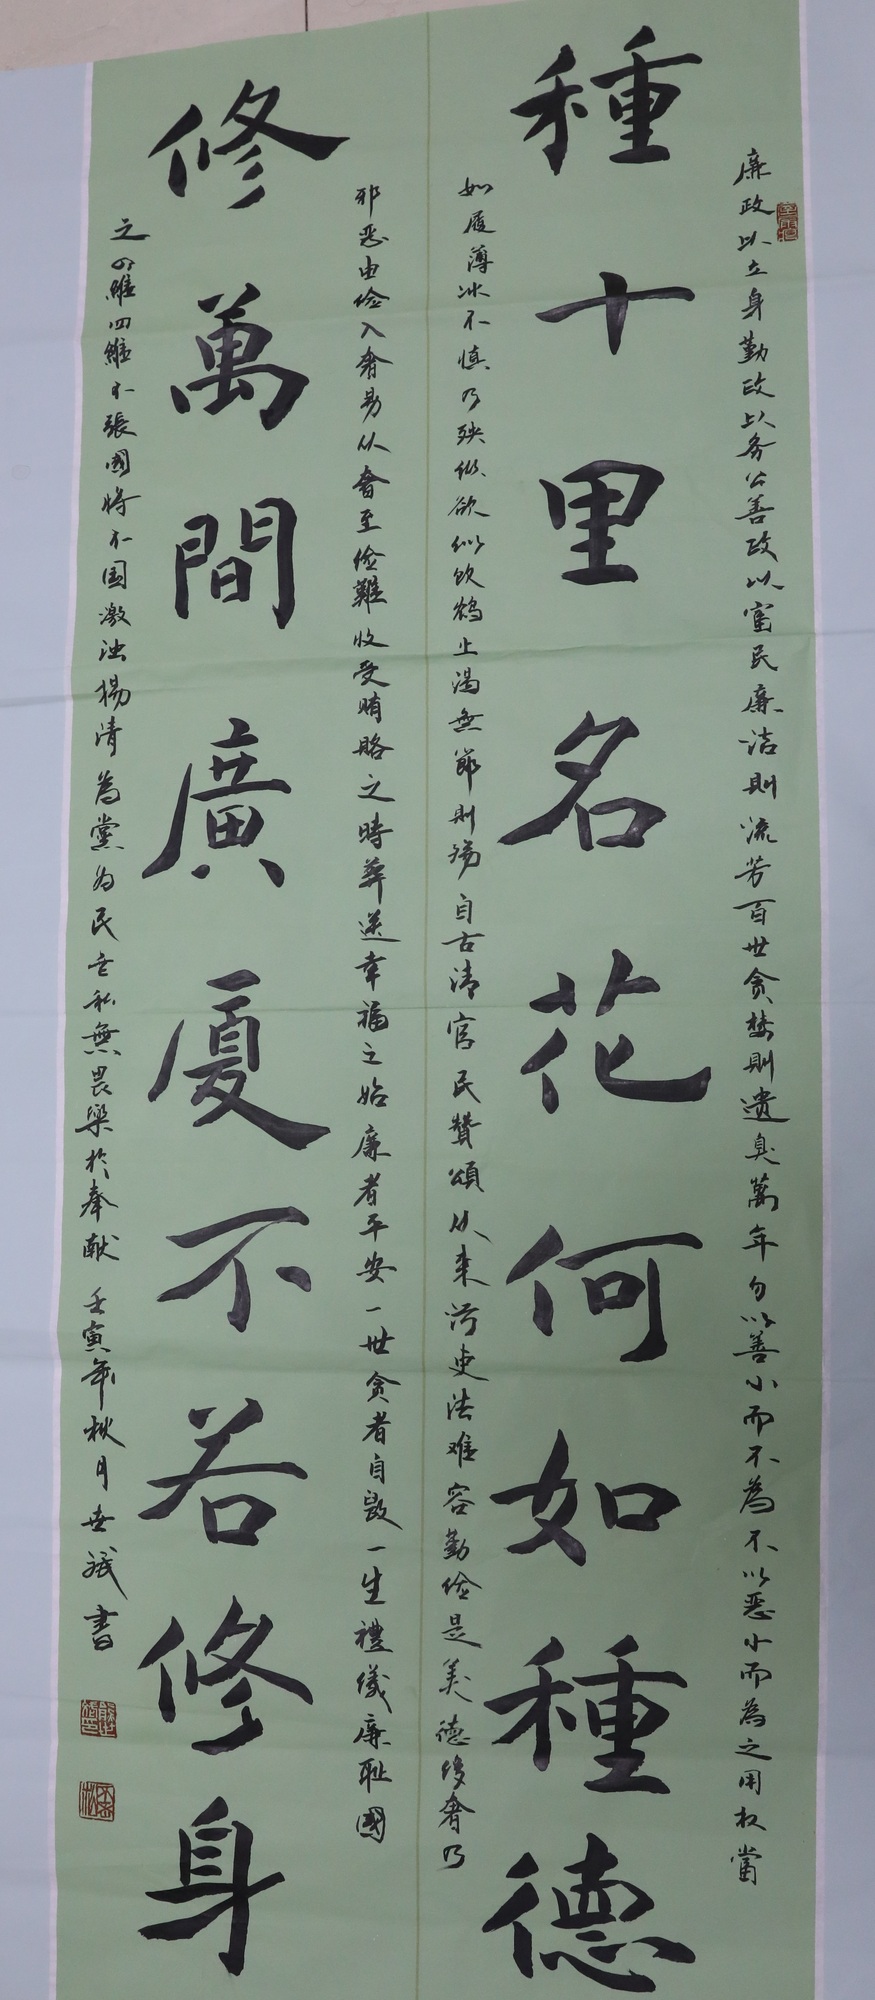 廉政以立身勤政以务公善政以富民廉洁則流芳百世贪婪則遗臭萬年勿以善小而不為不以恶小而為之用权當
種十里名花何如種德
如履薄冰不慎乃殃纵欲似饮鸩止渴無節則殇自古清官民贊頌从来污吏法难容勤俭是美德侈奢乃
邪恶由俭入奢易从奢至俭難收受贿賂之時葬送幸福之始廉者平安一世贪者自毁一生禮儀廉耻國
修萬間廣廈不若修身
之四維四維不張國將不国激浊揚清為黨为民无私無畏樂於奉献 壬寅年秋月世斌書